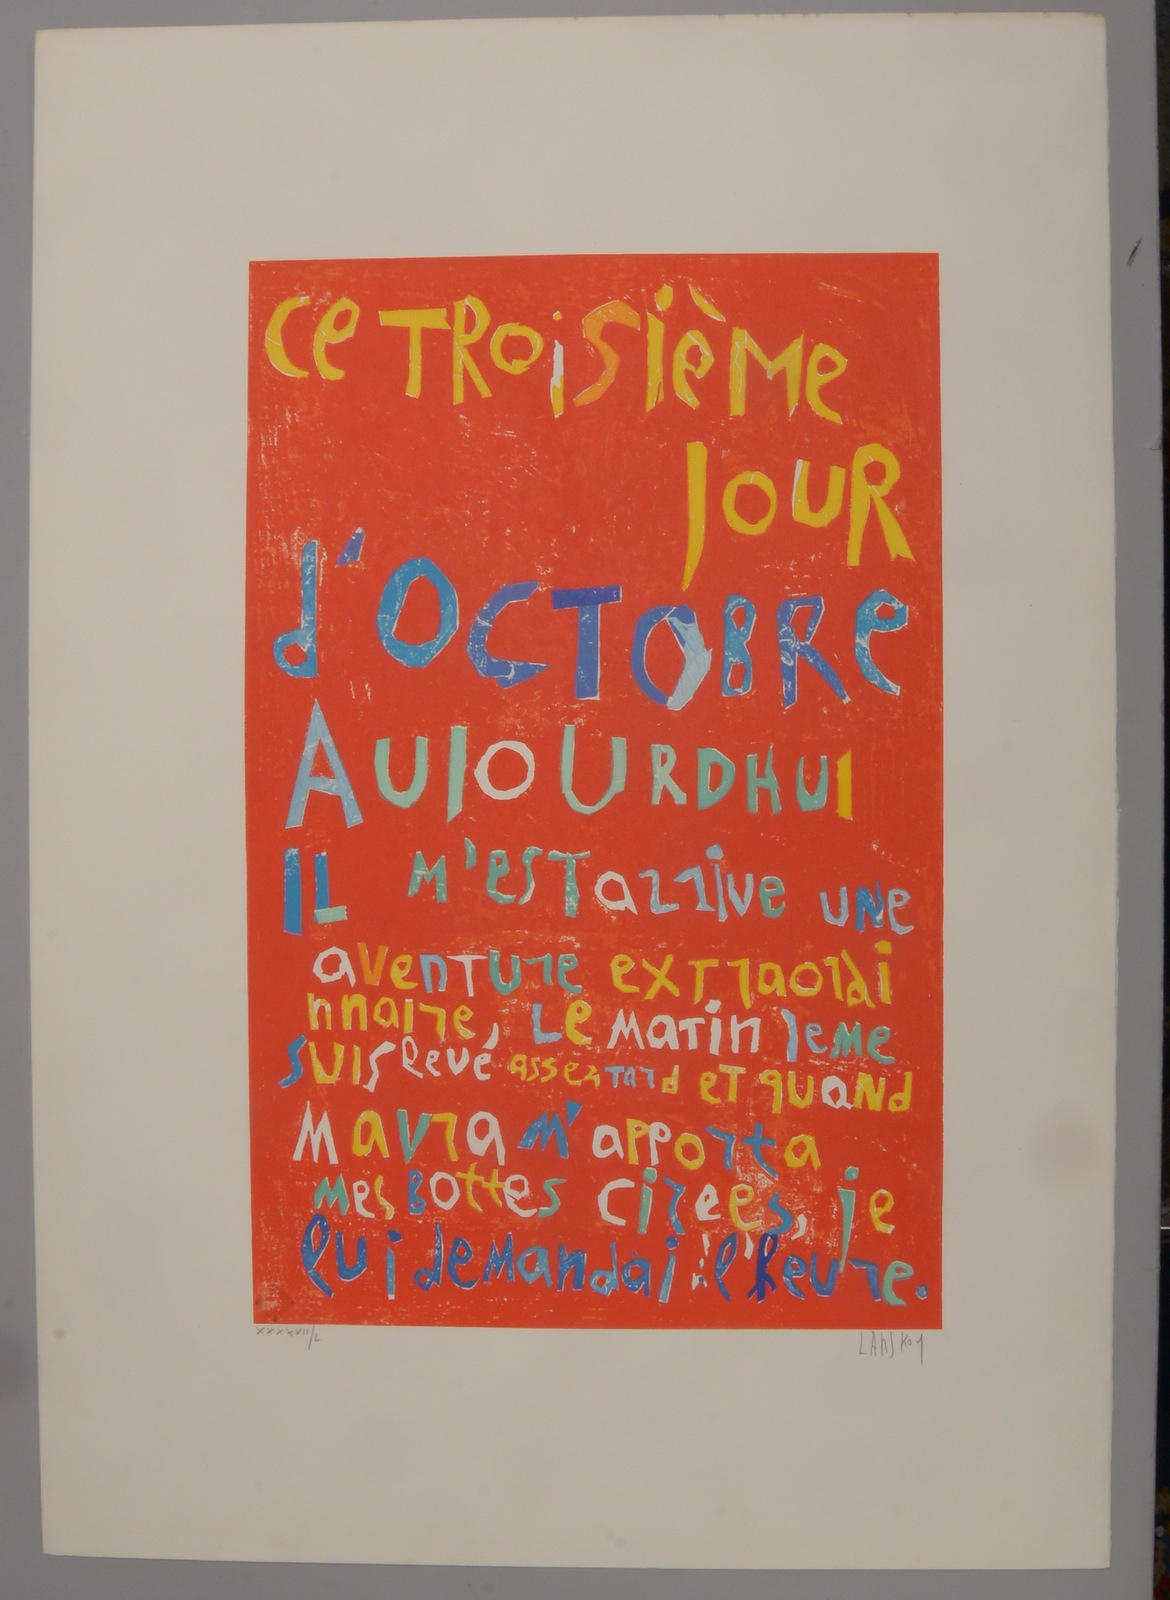 Ce TRoisième
JOUR
d'OCTOBRe
AUJOURDHUI
IL M'eST arrive UNe
aventure extraordi
nnaire, Le Matin JeMe
SUIS levé assez tard et quand
Mavra M'apporta
Mes Bottes cirees, je
lui deMandai l'heure.
XXXXVII/L
LANSKOY